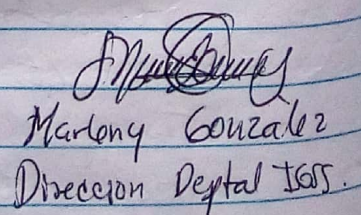 Marleny Gonzalez
Direccion Deptal IGSS.